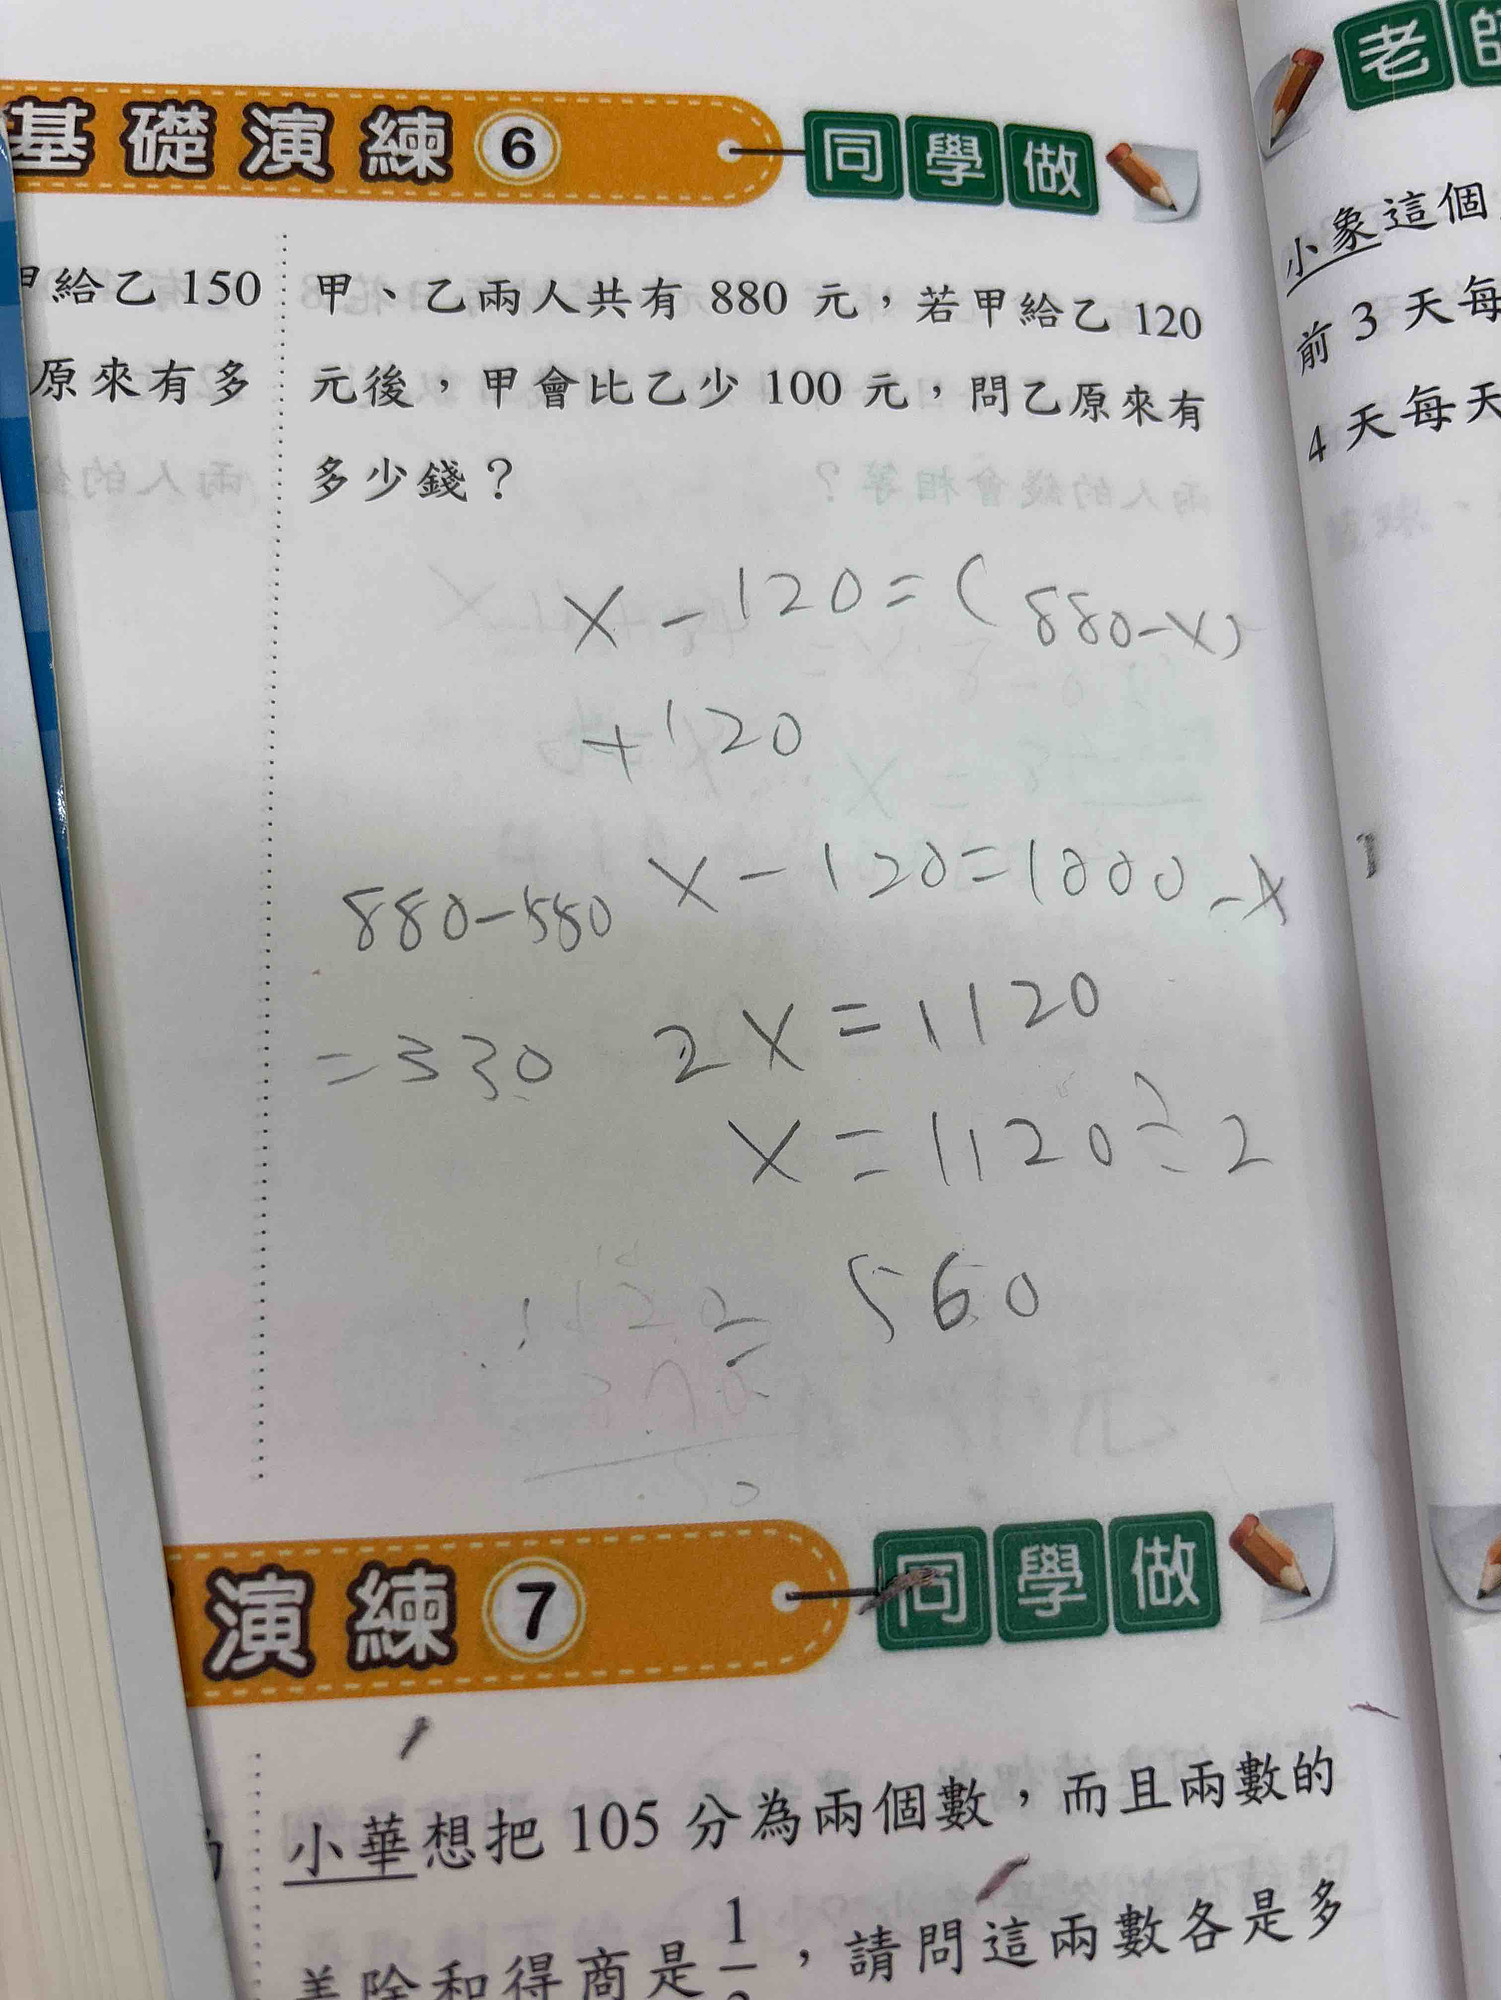 基礎演練 6 同學做
老
甲給乙 150
原來有多
甲、乙兩人共有 880 元，若甲給乙 120
元後，甲會比乙少 100 元，問乙原來有
多少錢？
小象這個
前 3 天每
4 天每天
x - 120 = ( 880 - x )
+ 120
x - 120 = 1000 - x
880 - 580
= 330
2x = 1120
x = 1120 ÷ 2
560
演練 7 同學做
小華想把 105 分為兩個數，而且兩數的
差除和得商是 1
，請問這兩數各是多